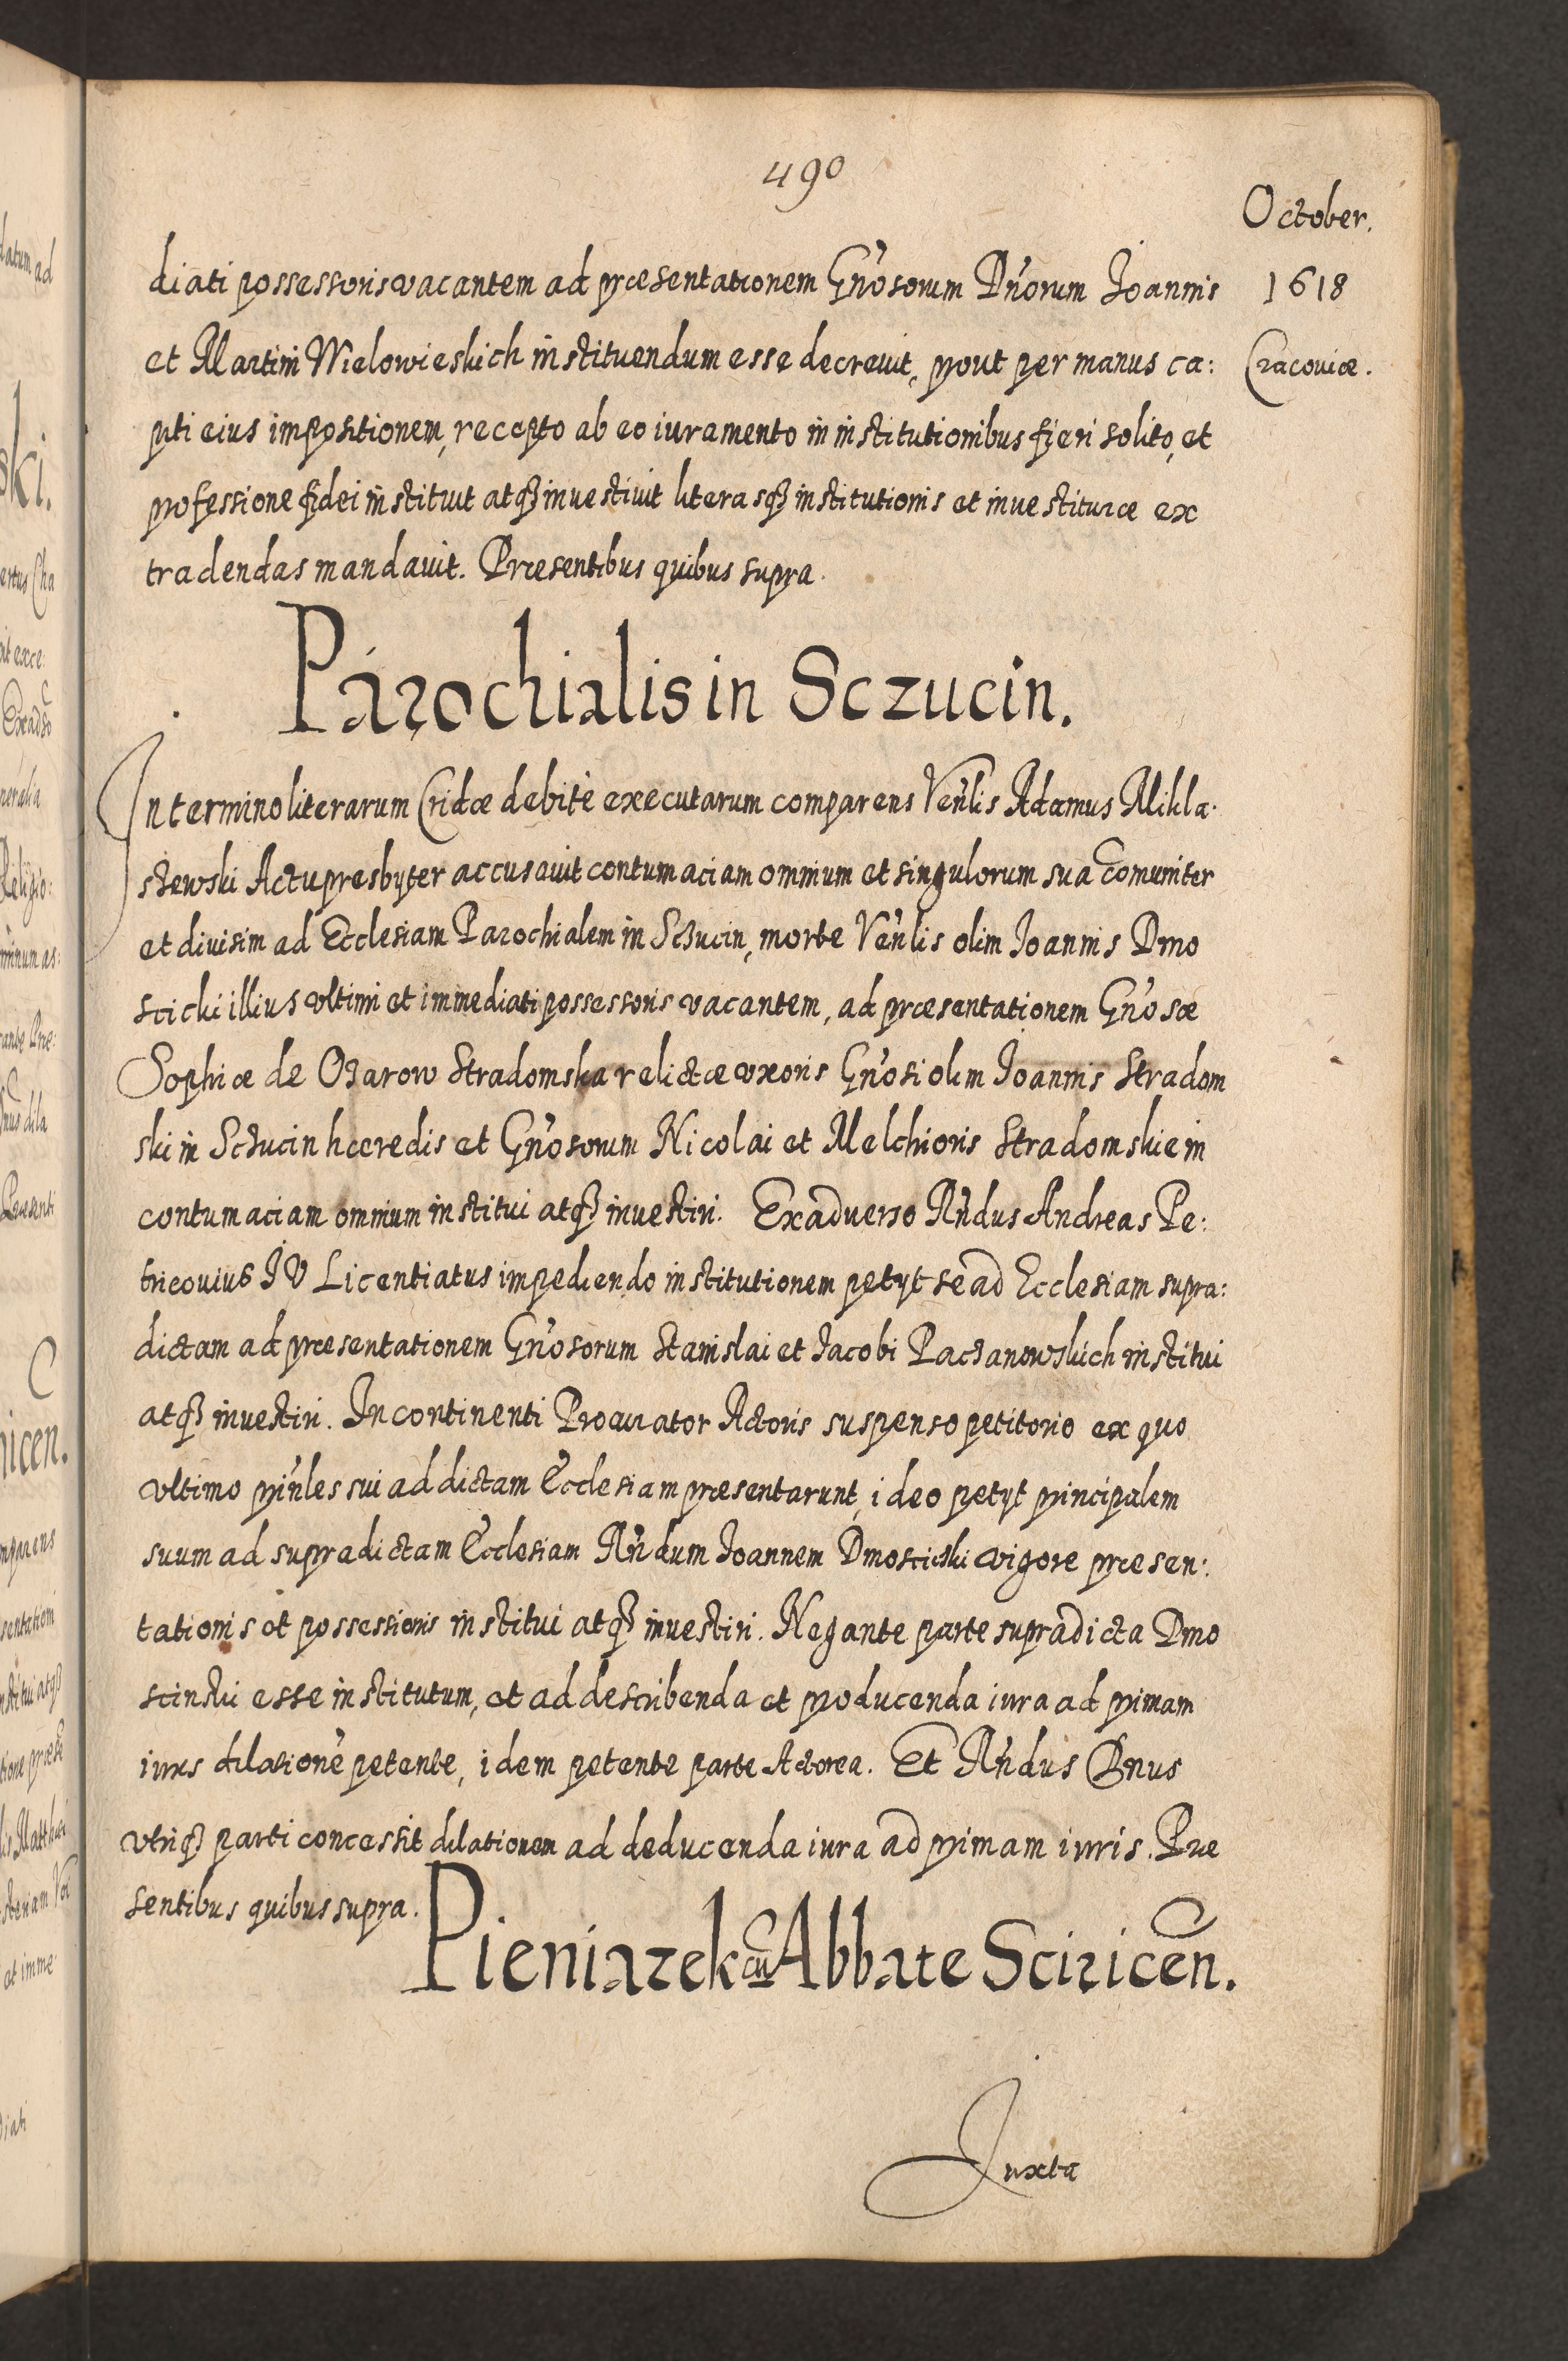 490
October.
diati possessoris vacantem ad præsentationem Gn̄osorum Dn̄orum Joannis 1618
et Martini Wielowieskich instituendum esse decrevit, prout per manus ca: Cracouiæ.
piti eius impositionem, recepto ab eo iuramento in institutionibus fieri solito, et
professione fidei instituit atq3 inuestiuit literasq3 institutionis et inuestituræ ex
tradendas mandauit. Præsentibus quibus supra.
Parochialis in Sczucin.
In termino literarum Cridæ debitè executarum comparens Vēnlis Adamus Mikla.
szewski Actu presbyter accusauit contumaciam omnium et singulorum sua com̄uniter
et diuisim ad Ecclesiam Parochialem in Sczucin, morte Vēnlis olim Joannis Dmo
scicki illius vltimi et immediati possessoris vacantem, ad præsentationem Gn̄osæ
Sophiæ de Ozarow Stradomska relictæ vxoris Gn̄osi olim Joannis Stradom
ski in Sczucin hæredis et Gn̄osorum Nicolai et Melchioris Stradomskie in
contumaciam omnium institui atq3 inuestiri. Ex aduerso Rn̄dus Andreas Pe:
tricouius J V Licentiatus impediendo institutionem petyt se ad Ecclesiam supra:
dictam ad præsentationem Gn̄osorum Stanislai et Jacobi Paczanowskich institui
atq3 inuestiri. In continenti Procurator Actoris suspenso petitorio ex quo
vltimo prin̄les sui ad dictam Ecclesiam præsentarunt, ideo petyt principalem
suum ad supradictam Ecclesiam Rn̄dum Joannem Dmoscicki vigore præsen:
tationis et possessionis institui atq3 inuestiri. Negante parte supradicta Dmo
scinski esse institutum, et ad describenda et producenda iura ad primam
iuris dilationē petente, idem petente parte Actorea. Et Rn̄dus Dn̄us
vtriq3 parti concessit dilationem ad deducenda iura ad primam iuris. Præ
sentibus quibus supra.
Pieniazek cū Abbate Sciricen̄.
Juxta